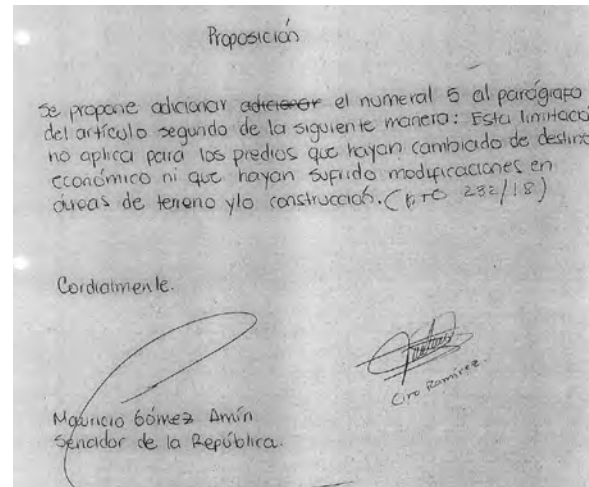 Proposición
Se propone adicionar adicionar el numeral 5 al parágrafo
del artículo segundo de la siguiente manera: Esta limitació
no aplica para los predios que hayan cambiado de destino
económico ni que hayan sufrido modificaciones en
áreas de terreno y/o construcción. ( 232/18)
Cordialmente.
Ciro Ramírez.
Mauricio Gómez Amín
Senador de la República.